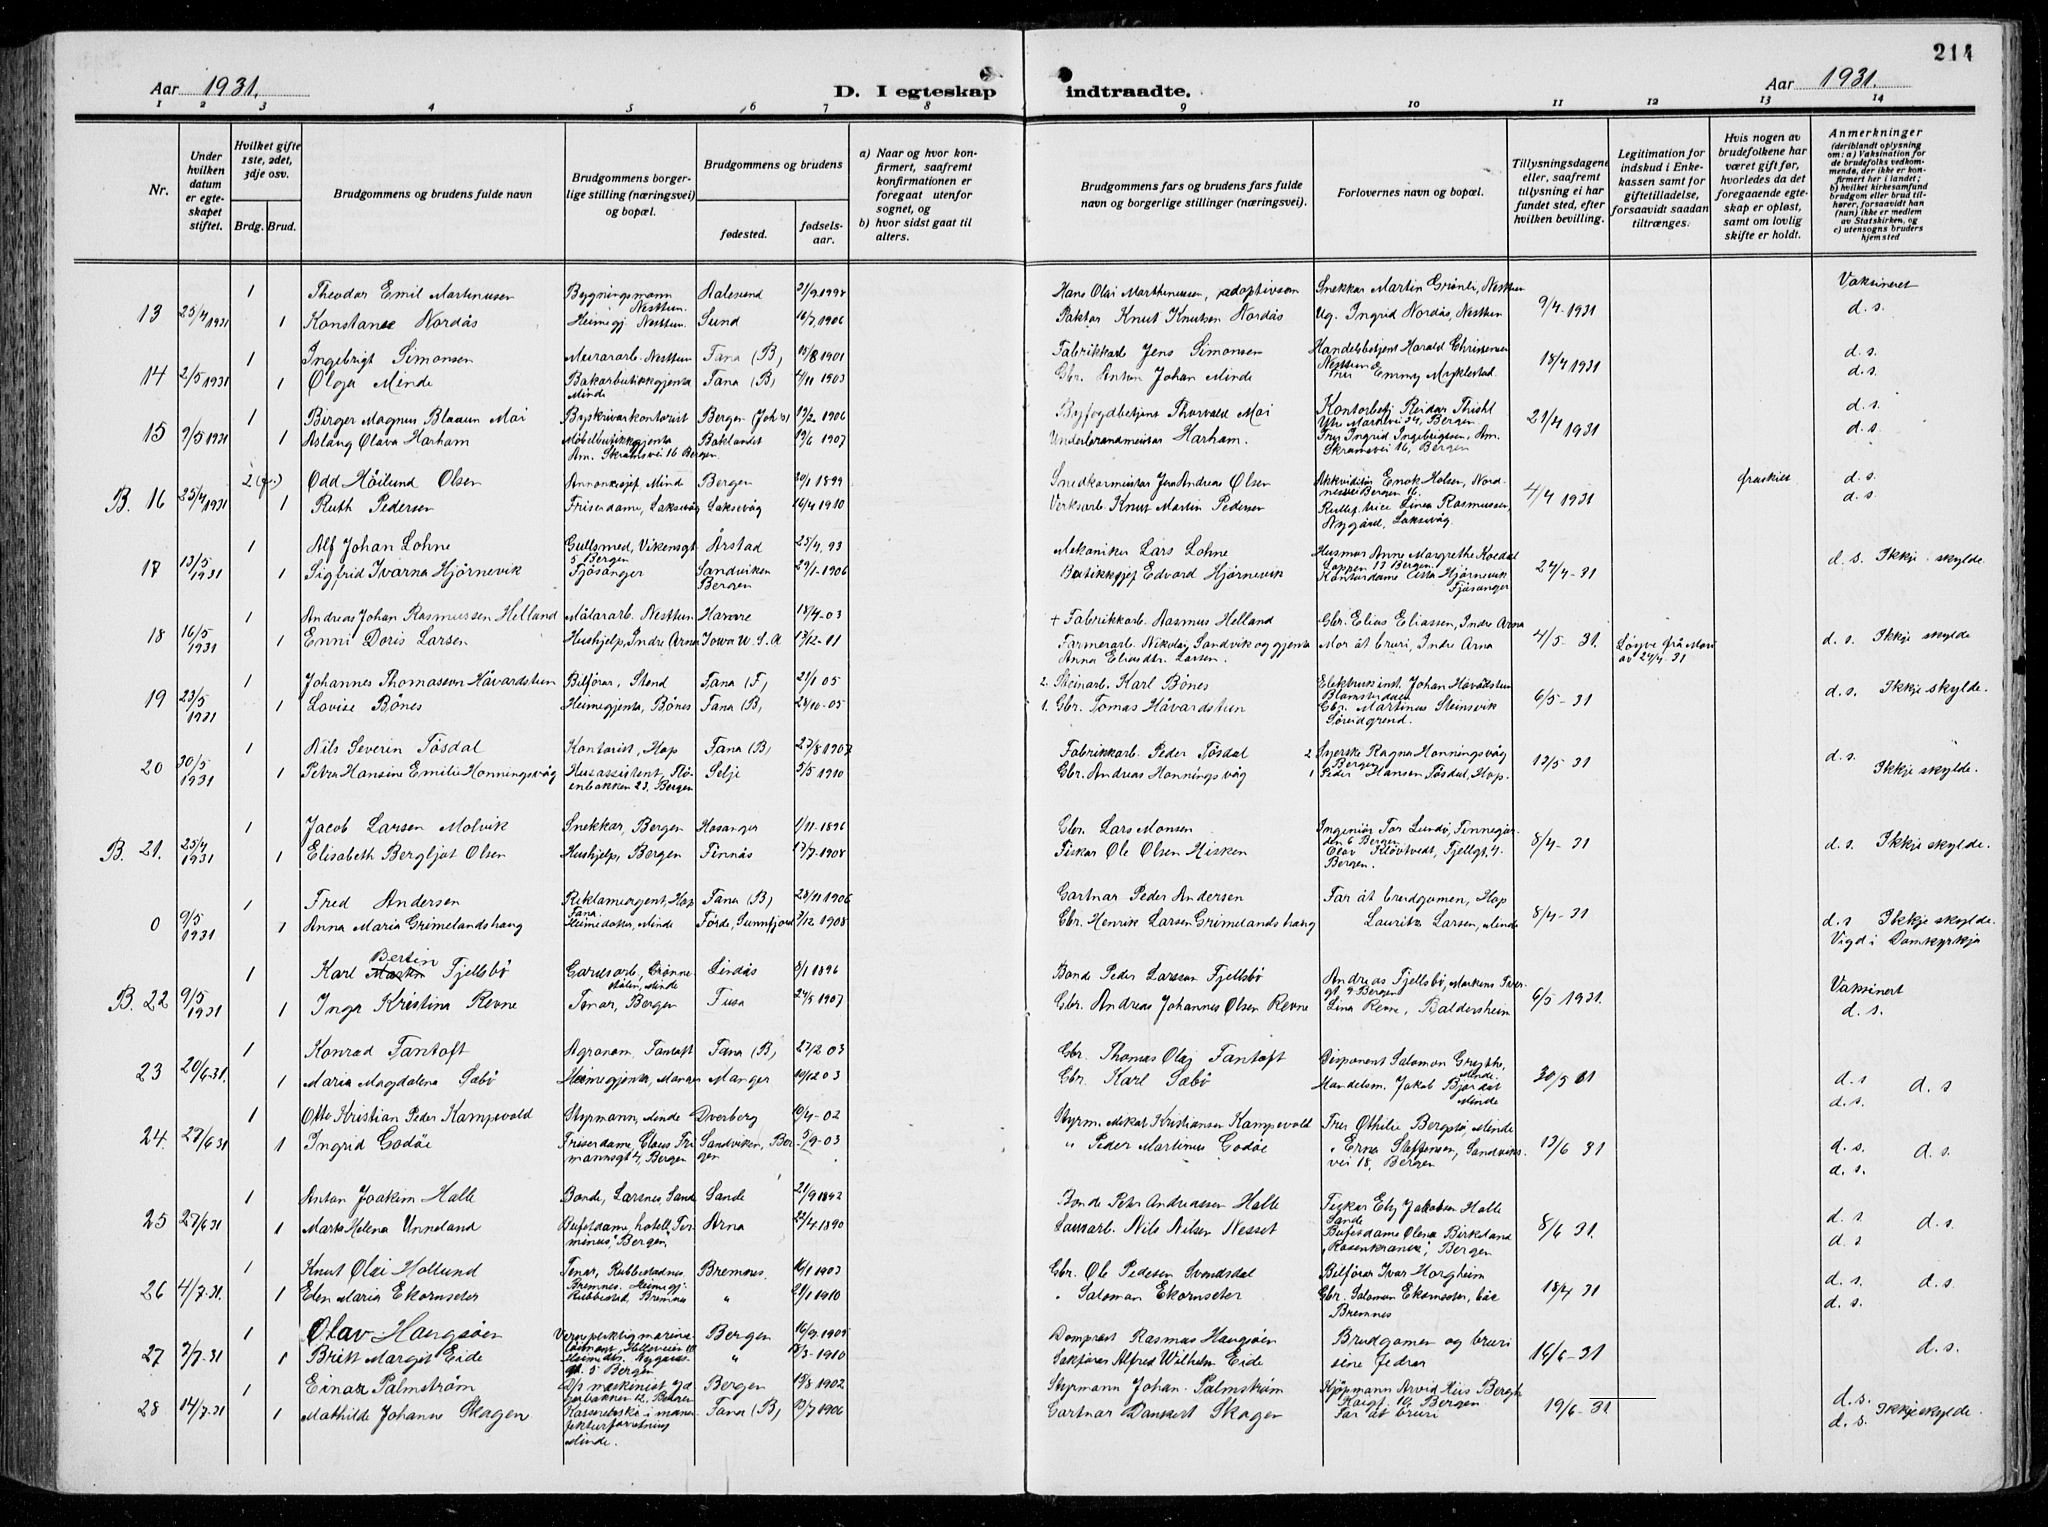 214
Aar 1931.
D. I egteskap indtraadte.
Aar 1931.
1 2 3 4 5 6 7 8 9 10 11 12 13 14
Nr.
Under hvilken datum er egteskapet stiftet.
Hvilket gifte 1ste, 2det, 3dje osv.
Brdg. Brud.
Brudgommens og brudens fulde navn
Brudgommens borgerlige stilling (næringsvei) og bopæl.
Brudgommens og brudens
fødested.
fødselsaar.
a) Naar og hvor konfirmert, saafremt konfirmationen er foregaat utenfor sognet, og
b) hvor sidst gaat til alters.
Brudgommens fars og brudens fars fulde navn og borgerlige stillinger (næringsvei).
Forlovernes navn og bopæl.
Tillysningsdagene eller, saafremt tillysning ei har fundet sted, efter hvilken bevilling.
Legitimation for indskud i Enkekassen samt for giftetilladelse, forsaavidt saadan tiltrænges.
Hvis nogen av brudefolkene har været gift før, hvorledes da det foregaaende egteskap er opløst, samt om lovlig skifte er holdt.
Anmerkninger (deriblandt oplysning om: a) Vaksination for de brudefolks vedkommende, der ikke er konfirmert her i landet; b) hvilket kirkesamfund brudgom eller brud tilhører, forsaavidt han (hun) ikke er medlem av Statskirken, og c) utensogns bruders hjemsted
1 Theodor Emil Martinussen Bygningsmann Nesttun. Aalesund 21/9 1898 Hans Olai Marthinussen, adoptivson Snekkar Martin Grönli, Nesttun Vaksineret
13 25/4 1931 1 Konstanse Nordås Heimegj. Nesttun. Sund 16/7 1906 Paktar Knut Knutsen Nordås Ug. Ingrid Nordås, Nesttun 9/4-1931 d. s.
1 Ingebrigt Simonsen Murararb. Nesttun Fana (B) 15/8 1901 Fabrikkarb Jens Simonsen Handelsbetjent Harald Christensen Nesttun d. s.
14 2/5 1931 1 Olga Minde Bakarbutikkgjenta Minde Fana (B) 4/11 1903 Gbr. Anton Johan Minde Emmy Myklestad 18/4 1931 d. s.
1 Birger Magnus Blaauw Moi Byskrivarkontorist Bergen (Johs) 19/2 1906 Byfogdbetjent Thorvald Moi Kontorbetj Reidar Thisthl Ytre Markevei 34, Bergen d. s.
15 9/5 1931 1 Aslaug Olava Harham Möbelbutikkgjenta Am. Skramsvei 16 Bergen Baklandet 19/6 1907 Underbrandmeister Harham. Frk Ingrid Ingebrigtsen, Am. Skramsvei 16, Bergen 21/4 1931 d. s.
2 (fr.) Odd Höilund Olsen Annonsesjef Minde Bergen 20/1 1899 Snedkarmeister Jens Andreas Olsen Akkvisitör Enok Holsen, Nordnesvei Bergen 16 fraskilt d. s.
B. 16 25/4 1931 1 Ruth Pedersen Friserdame, Laksevåg Laksevåg 16/4 1910 Verksarb. Knut Martin Pedersen Linea Rasmussen, Nygård, Laksevåg. 4/4 1931 d. s.
1 Alf Johan Lohne Gullsmed, Vikensgt 5 Bergen Årstad 25/4, 93 Mekaniker Lars Lohne Husmor Anne Margrethe Koedal Loppen 13 Bergen
17 13/5 1931 1 Sigfrid Ivarna Hjörnevik Fjösanger Sandviken Bergen 29/1-1906 Butikksjef Edvard Hjörnevik Kontordame Cissa Hjörnevik Fjösanger 24/4-31 d. s. Ikkje skylde.
1 Andreas Johan Rasmussen Helland Målararb. Nesttun Hamre 18/4-03 + Fabrikkarb. Rasmus Helland Gbr. Elias Eliassen, Indre Arna
18 16/5 1931 1 Enni Doris Larsen Hushjelp, Indre Arna Iowa U.S.A 13/12-11 Farmerarb. Nikolaj Sandvik og gjenta Anna Eliasdtr. Larsen. Mor åt bruri, Indre Arna 4/5-31. Löyve frå Mori av 24/4-31 d. s. Ikkje skylde
1 Johannes Thomassen Håvardstun Bilförar, Stend Fana (F) 21/1 05 2. Steinarb. Karl Bönes Elektr. inst. Johan Håvardstun Blomsterdalen
19 23/5 1931 1 Lovise Bönes Heimegjenta, Bönes Fana (B) 28/10-05 1. Gbr. Tomas Håvardstun Gbr. Martinus Steinsvik Söreidgrend. 6/5-31 d. s. Ikkje skylde.
1 Nils Severin Tösdal Kontorist, Hop Fana (B) 27/8 1907 Fabrikkarb. Peder Tösdal 2 Syerske Ragna Honningsvåg Bergen
20 30/5 1931 1 Petra Hansine Emilie Honningsvåg Husassistent, Fløenbakken 23, Bergen Selje 3/5 1910 Gbr. Andreas Honningsvåg 1 Peder Hansen Tösdal, Hop. 12/5-31 d. s. Ikkje skylde.
1 Jacob Larsen Molvik Snekkar, Bergen Hosanger 1/11-1896 Gbr. Lars Monsen Ingeniör Tor Lundö, Finnegården 6 Bergen
B. 21. 25/4 1931 1 Elisabeth Bergljot Olsen Hushjelp, Bergen Finnås 17/7-1908 Fiskar Ole Olsen Hisken Olav Klövtveit, Fjellgt. 4. Bergen. 8/4-31 d. s. Ikkje skylde.
1 Fred Andersen Reklameagent, Hop Fana. Fana (B) 28/11 1906 Gartnar Peder Andersen Far åt brudgomen, Hop
0 9/5 1931 1 Anna Maria Grimelandshaug Heimedoter, Minde Förde, Sunnfjord 7/12 1908 Gbr. Henrik Larsen Grimelandshaug Lauritz Larsen, Minde 8/4-31 d. s Ikkje skylde. Vigd i Domkyrkja
Bertin
1 Karl Martin Fjellsbö Gardsarb, Grönnestölen, Minde Lindås 8/1 1896 Bonde Peder Larsson Fjellsbö Andreas Fjellsbö, Markens Tver gt. 9 Bergen Vaksinert
B. 22 9/5 1931 1 Inga Kristina Revne Tenar, Bergen Fusa 24/5 1907 Gbr. Andreas Johannes Olsen Revne Lina Revne, Baldersheim 6/5 1931. d. s.
1 Konrad Fantoft Agronom, Fantoft Fana (B) 27/2 03 Gbr. Thomas Olaj Fantoft Disponent Salomon Grythe, Minde.
23 20/6-31. 1 Maria Magdalena Sæbö Heimegjenta, Manger Manger 19/12 03 Gbr. Karl Sæbö Handelsm. Jakob Bjordal Minde 30/5 31 d. s d. s. d. s
1 Otto Kristian Peder Kampevold Styrmann, Minde Dverberg 10/4-02 Styrm. Mikal Kristiansen Kampevold Frk Othilie Bergstö, Minde
24. 27/6 31 1 Ingrid Godöe Friserdame, Claus Frimannsgt 4, Bergen Sandviken, Bergen 5/9-03 " Peder Martinus Godöe " Erna Steffensen, Sandviksvei 18, Bergen 13/6 31 d. s. d. s. d. s.
1 Anton Joakim Halle Bonde, Larsnes Sande Sande 21/9 1892 Bonde Petr Andreassen Halle Fiskar Elij Jakobsen Halle Sande
25 27/6 31 1 Marta Helena Unneland Bufetdame, hotell "Terminus", Bergen Arna 22/4 1890 Nils Nilsen Nesset Bufetdame Olena Birkeland "Rosenkrantz", Bergen 8/6 31. d. s d. s. d. s.
1 Knut Olai Hollund Tenar, Rubbestadnes Bremnes. Bremnes. 16/1 1903 Gbr. Ole Pedersen Svendsdal Bilförar Ivar Horgheim
26 4/7-31. 1 Elen Maria Ekornseter Heimegj. Rubbestad, Bremnes " 21/1 1910 " Salomon Ekornseter Gbr. Salomon Ekornseter, Bremnes 18/4 31 d. s. d. s. d. s.
1 Olav Haugsöen Vernepliktig marine Bergen 16/9 1905 Domprost Rasmus Haugsöen Brudgomen og bruri
27 7/7-31 1 Britt Margit Eide Heimedtr. Nygårdsgt. 5 Bergen " 18/3-1910 Sakförar Alfred Wilhelm Eide sine fedrar 16/6-31 d. s.
1 Einar Palmström maskinist Bergen 19/8 1902 Styrmann Johan Palmström Kjöpmann Arvid Riis Bergh Kaigt 14 Bergen. d. s.
28 14/7-31 1 Mathilde Johanne Skagen Kassererske i manufakturforretning Minde. Fana (B) 13/7 1906 Gartnar Dankert Skagen Far åt bruri 19/6-31 d. s. Ikkje skylde.